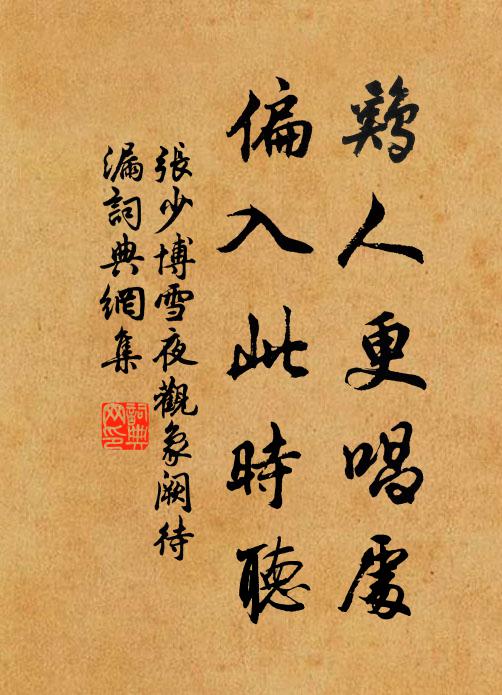 鷄人更唱處
偏入此時聽
張少博雪夜觀象阙待
漏詞典網集
詞典
网印